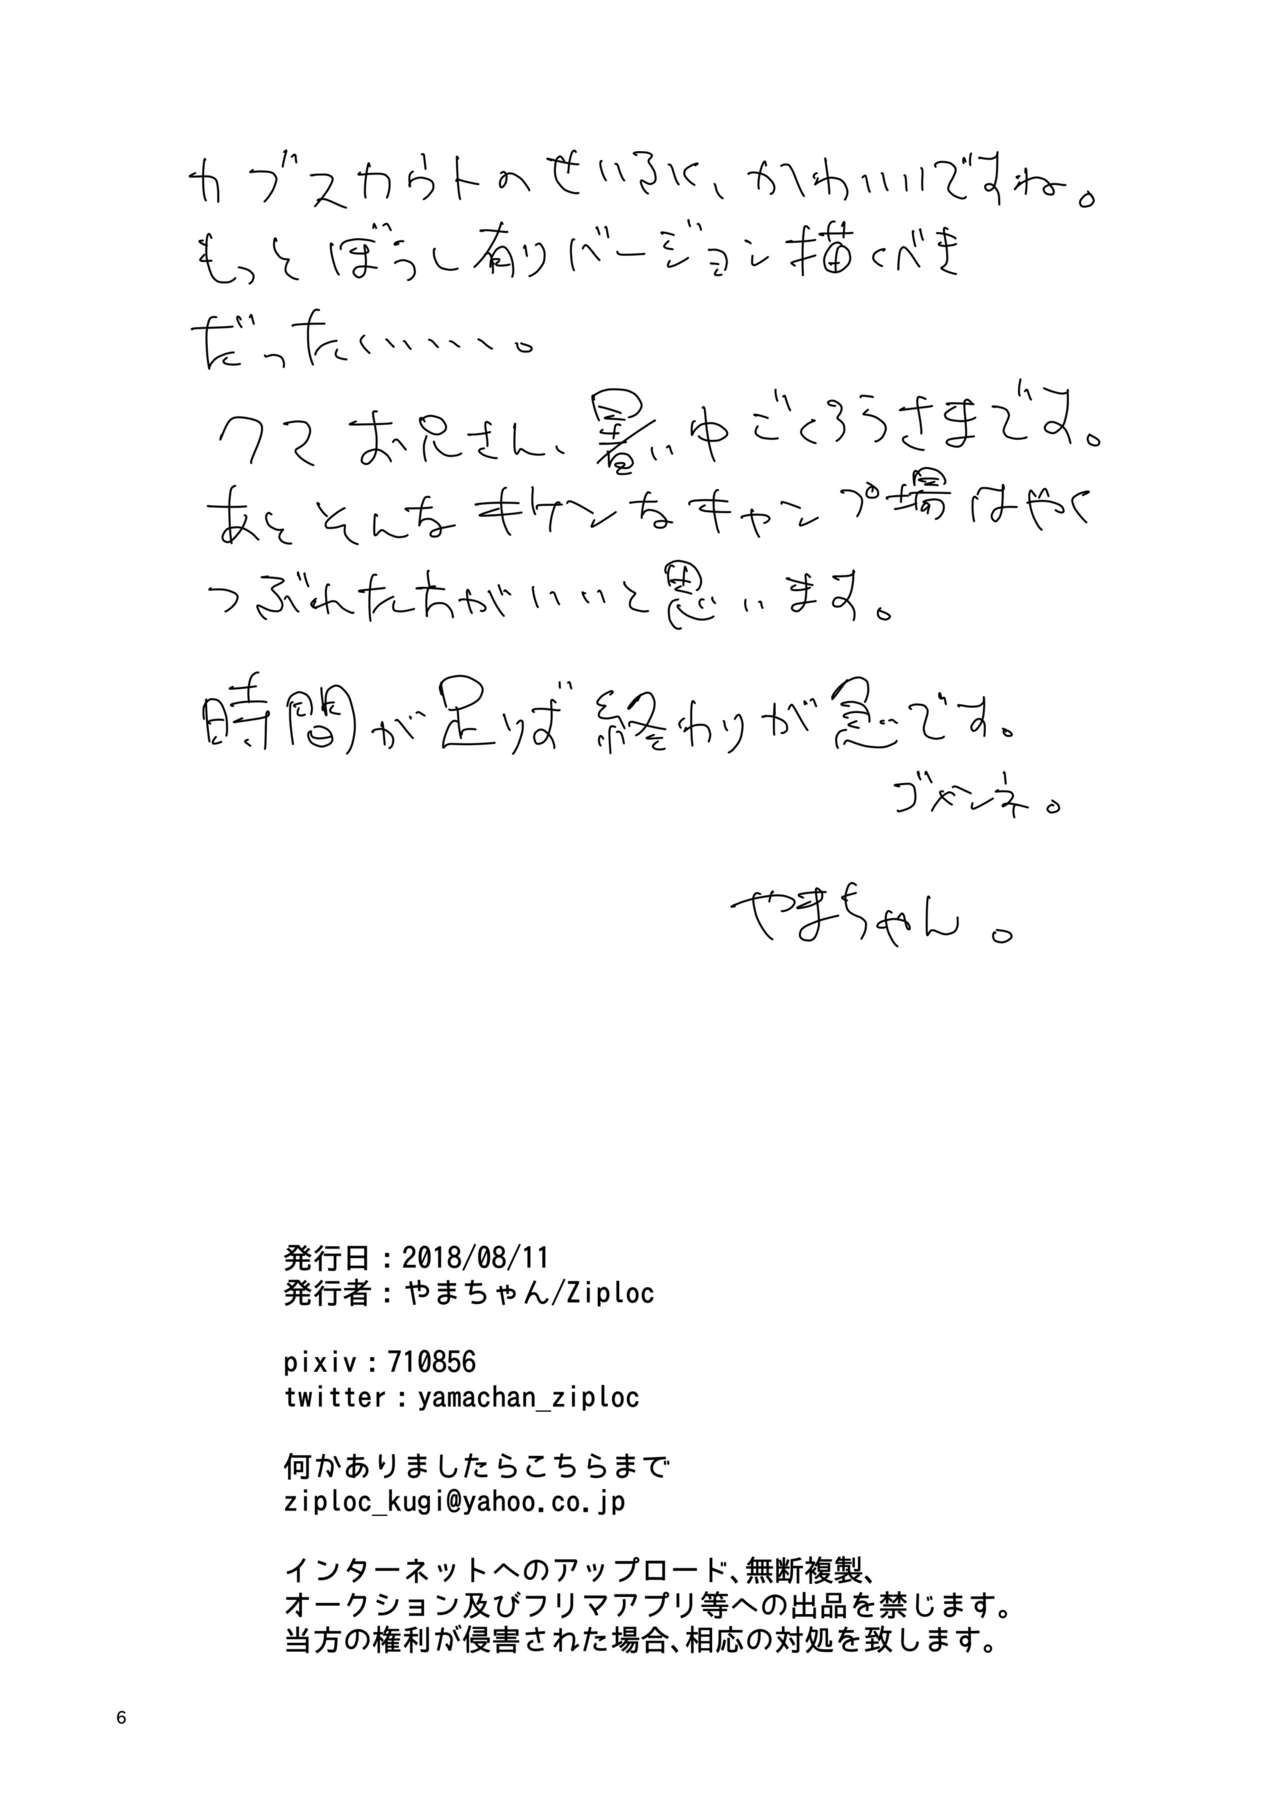 カブスカウトのせいふく、かわいいですね。
もっとぼうし有りバージョン描くべき
だった……。
クマお兄さん、暑い中ごくろうさまです。
あとそんなキケンなキャンプ場はやく
つぶれた方がいいと思います。
時間が足りず終わりが急です。
ゴメンネ。
やまちゃん。
発行日：2018/08/11
発行者：やまちゃん/Ziploc
pixiv：710856
twitter：yamachan_ziploc
何かありましたらこちらまで
ziploc_kugi@yahoo.co.jp
インターネットへのアップロード、無断複製、
オークション及びフリマアプリ等への出品を禁じます。
当方の権利が侵害された場合、相応の対処を致します。
6